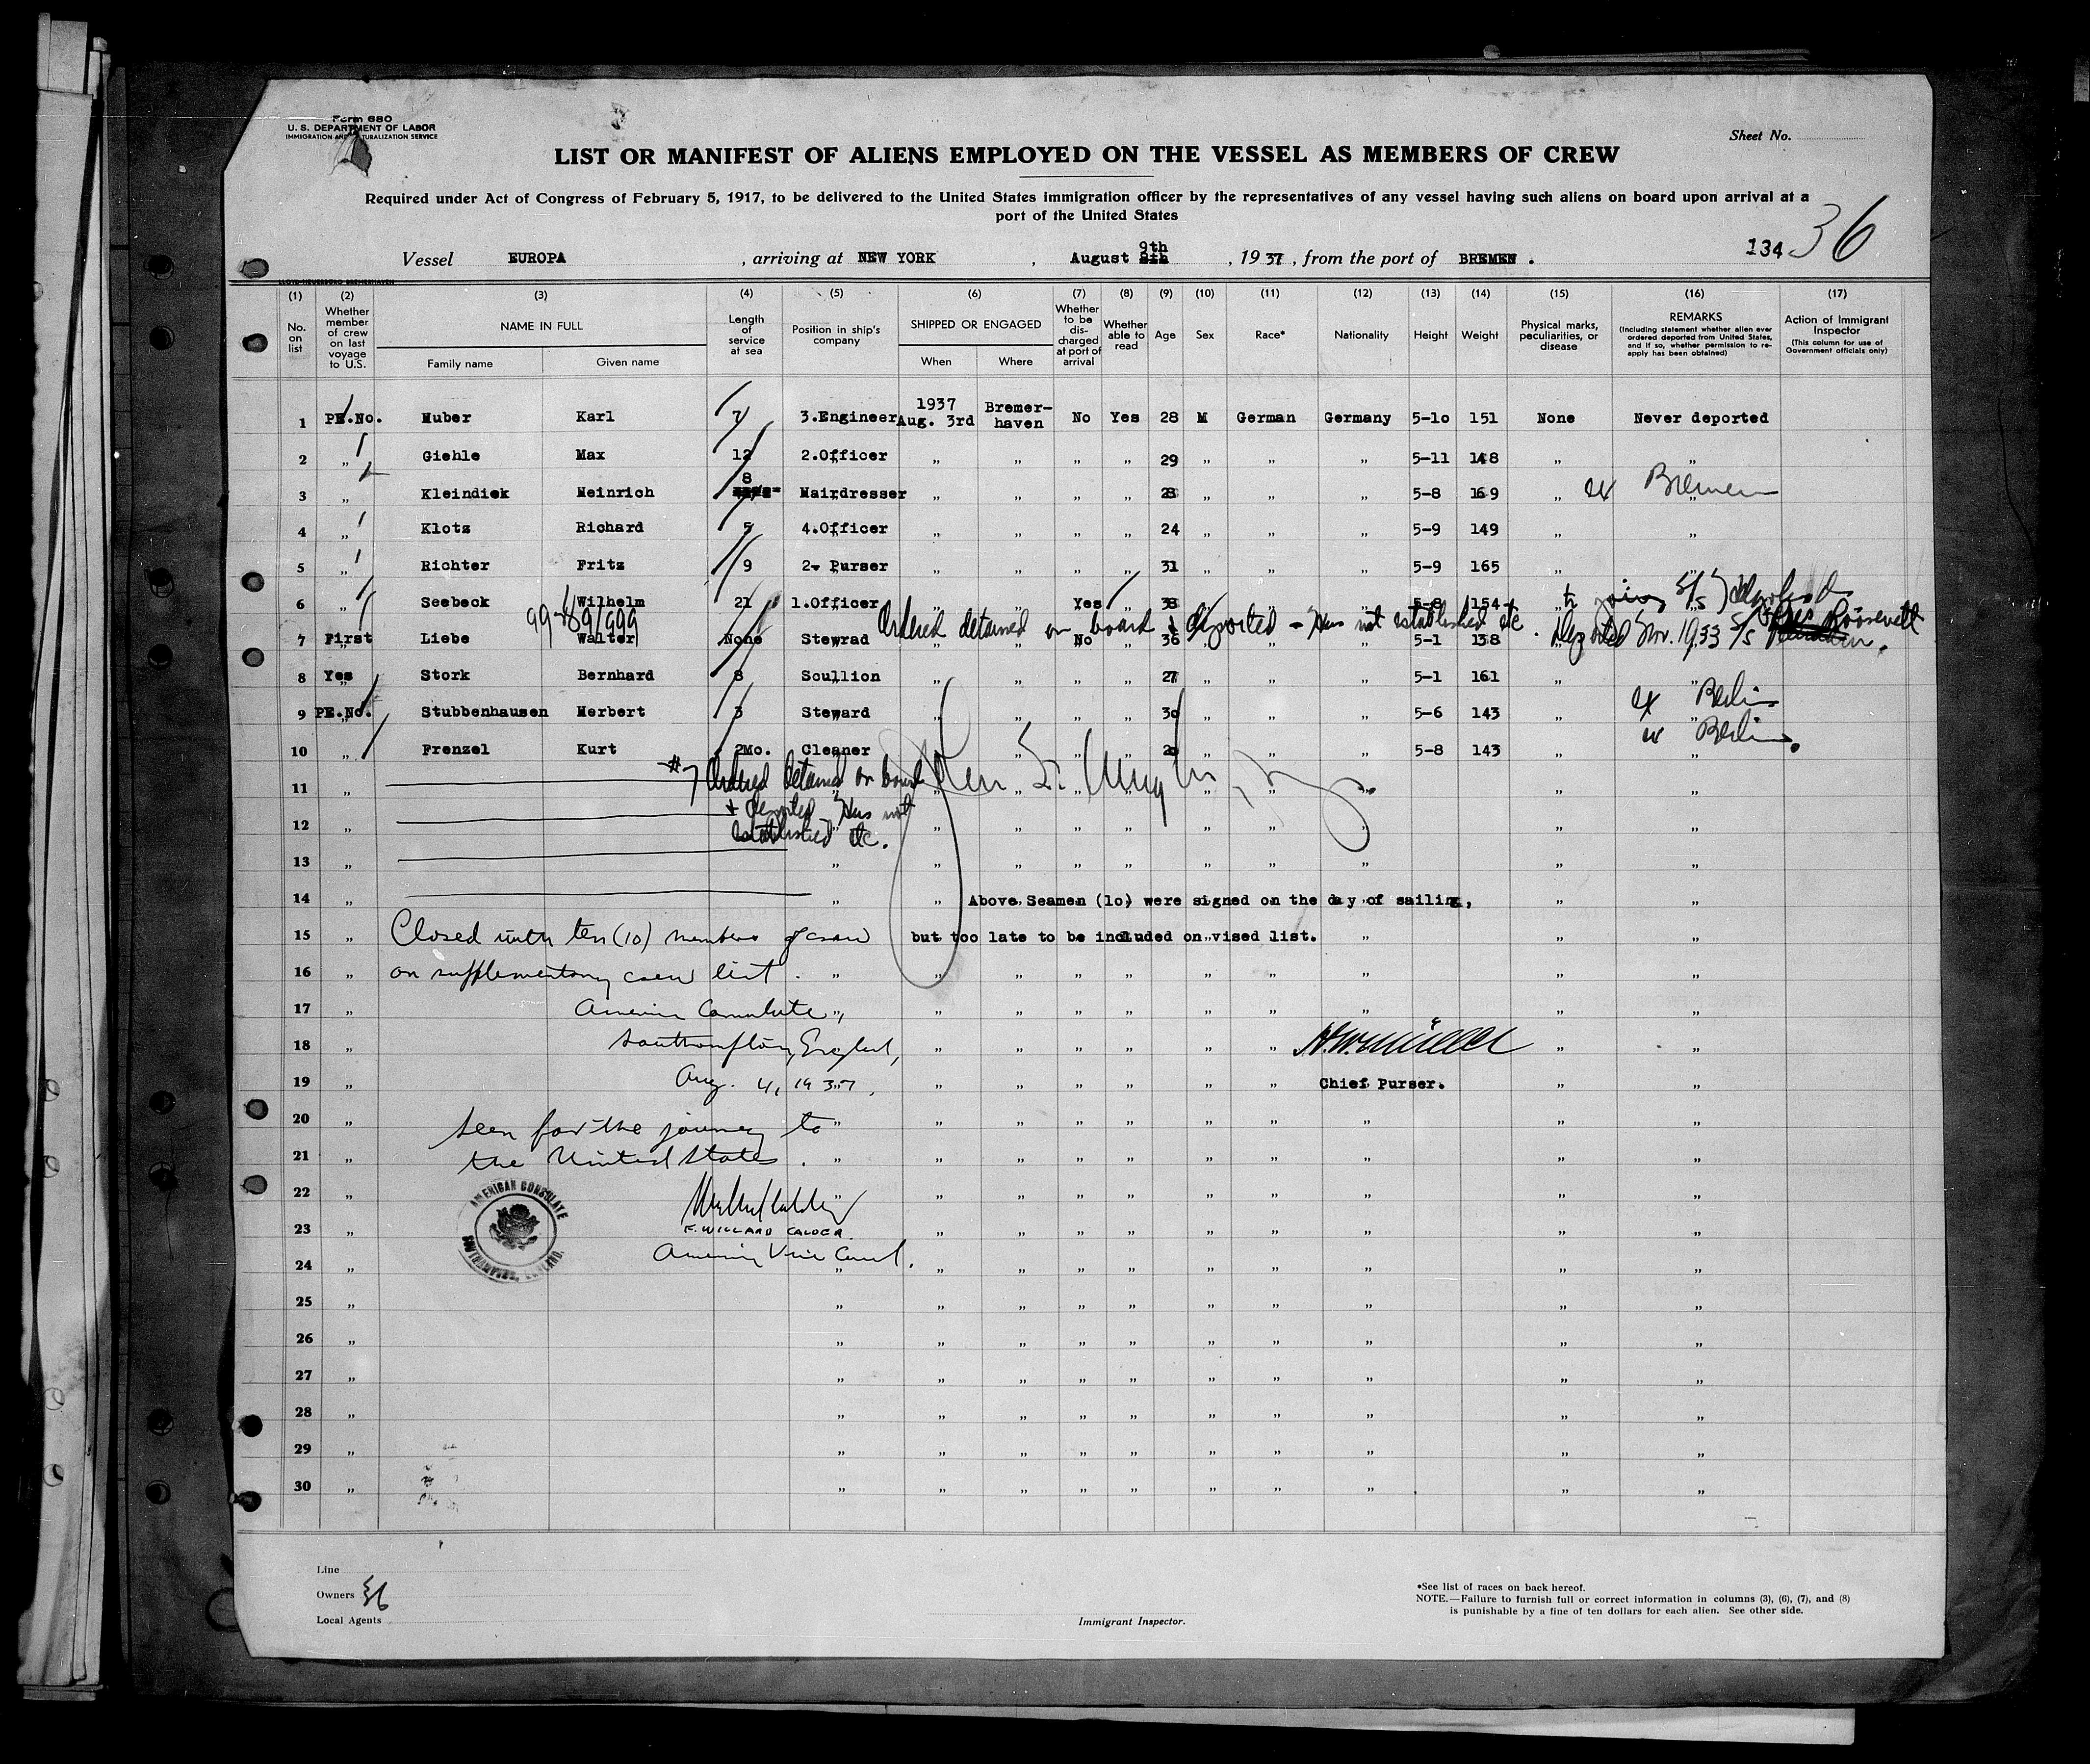 Form 680
U. S. DEPARTMENT OF LABOR
IMMIGRATION AND NATURALIZATION SERVICE
Sheet No.
LIST OR MANIFEST OF ALIENS EMPLOYED ON THE VESSEL AS MEMBERS OF CREW
Required under Act of Congress of February 5, 1917, to be delivered to the United States immigration officer by the representatives of any vessel having such aliens on board upon arrival at a
port of the United States
134 36
9th
Vessel EUROPA , arriving at NEW YORK , August 8th , 19 37 , from the port of BREMEN .
(1) (2) (3) (4) (5) (6) (7) (8) (9) (10) (11) (12) (13) (14) (15) (16) (17)
No. on list
Whether member of crew on last voyage to U.S.
NAME IN FULL
Family name Given name
Length of service at sea
Position in ship's company
SHIPPED OR ENGAGED
When Where
Whether to be discharged at port of arrival
Whether able to read
Age
Sex
Race*
Nationality
Height
Weight
Physical marks, peculiarities, or disease
REMARKS
(Including statement whether alien ever ordered deported from United States, and if so, whether permission to reapply has been obtained)
Action of Immigrant Inspector
(This column for use of Government officials only)
1 PE.No. Huber Karl 7 3.Engineer 1937 Aug. 3rd Bremerhaven No Yes 28 M German Germany 5-10 151 None Never deported
2 „ Giehle Max 12 2.Officer „ „ „ „ 29 „ „ „ 5-11 148 „ „
3 „ Kleindiek Heinrich 8 Hairdresser „ „ „ „ 28 „ „ „ 5-8 169 „ ex Bremen
4 „ Klotz Richard 5 4.Officer „ „ „ „ 24 „ „ „ 5-9 149 „ „
5 „ Richter Fritz 9 2. Purser „ „ „ „ 31 „ „ „ 5-9 165 „ „
6 „ Seebeck Wilhelm 21 1.Officer „ „ Yes „ 38 „ „ „ 5-8 154 „ to join S/S
99-489/999 Ordered detained on board & deported - Has not established etc. Deported Nov. 1933 S/S Pres Roosevelt
7 First Liebe Walter None Stewrad „ „ No „ 36 „ „ „ 5-1 138 „
8 Yes Stork Bernhard 8 Scullion „ „ „ „ 27 „ „ „ 5-1 161 „ „
9 PE.No. Stubbenhausen Herbert 3 Steward „ „ „ „ 30 „ „ „ 5-6 143 „ ex Berlin
10 „ Frenzel Kurt 2Mo. Cleaner „ „ „ „ 20 „ „ „ 5-8 143 „ ex Berlin.
11 „ #7 Ordered detained on board
12 „ & deported Has not
established etc.
13 „
14 „ Above Seamen (10) were signed on the day of sailing,
15 „ Closed with ten (10) members of crew but too late to be included on vised list.
16 „ on supplementary crew list.
17 „ American Consulate,
18 „ Southampton, England,
19 „ Aug. 4, 1937. Chief Purser.
20 „ Seen for the journey to
21 „ the United States.
22 „
AMERICAN CONSULATE
SOUTHAMPTON, ENGLAND.
23 „ F. WILLARD CALDER.
24 „ American Vice Consul.
25 „
26 „
27 „
28 „
29 „
30 „
Line
Owners 36
Local Agents
Immigrant Inspector.
*See list of races on back hereof.
NOTE.—Failure to furnish full or correct information in columns (3), (6), (7), and (8)
is punishable by a fine of ten dollars for each alien. See other side.